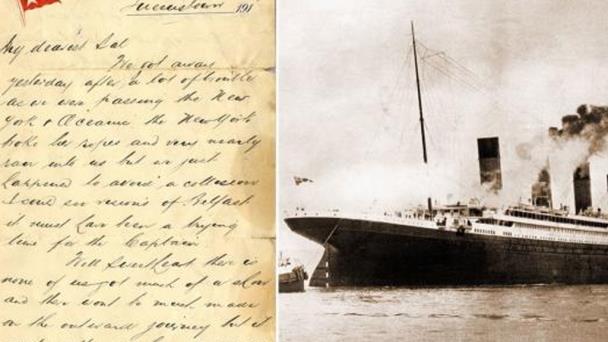 Queenstown 191
My dearest Sal
We got away
yesterday after a lot of trouble
as we were passing the New
York & Oceanic the New York
broke her ropes and very nearly
ran into us but we just
happened to avoid a collesion
of Belfast
it must have been a trying
time for the Captain
Well Sweetheart there is
none of us got much of a show
and there wont be much made
on the outward journey but it